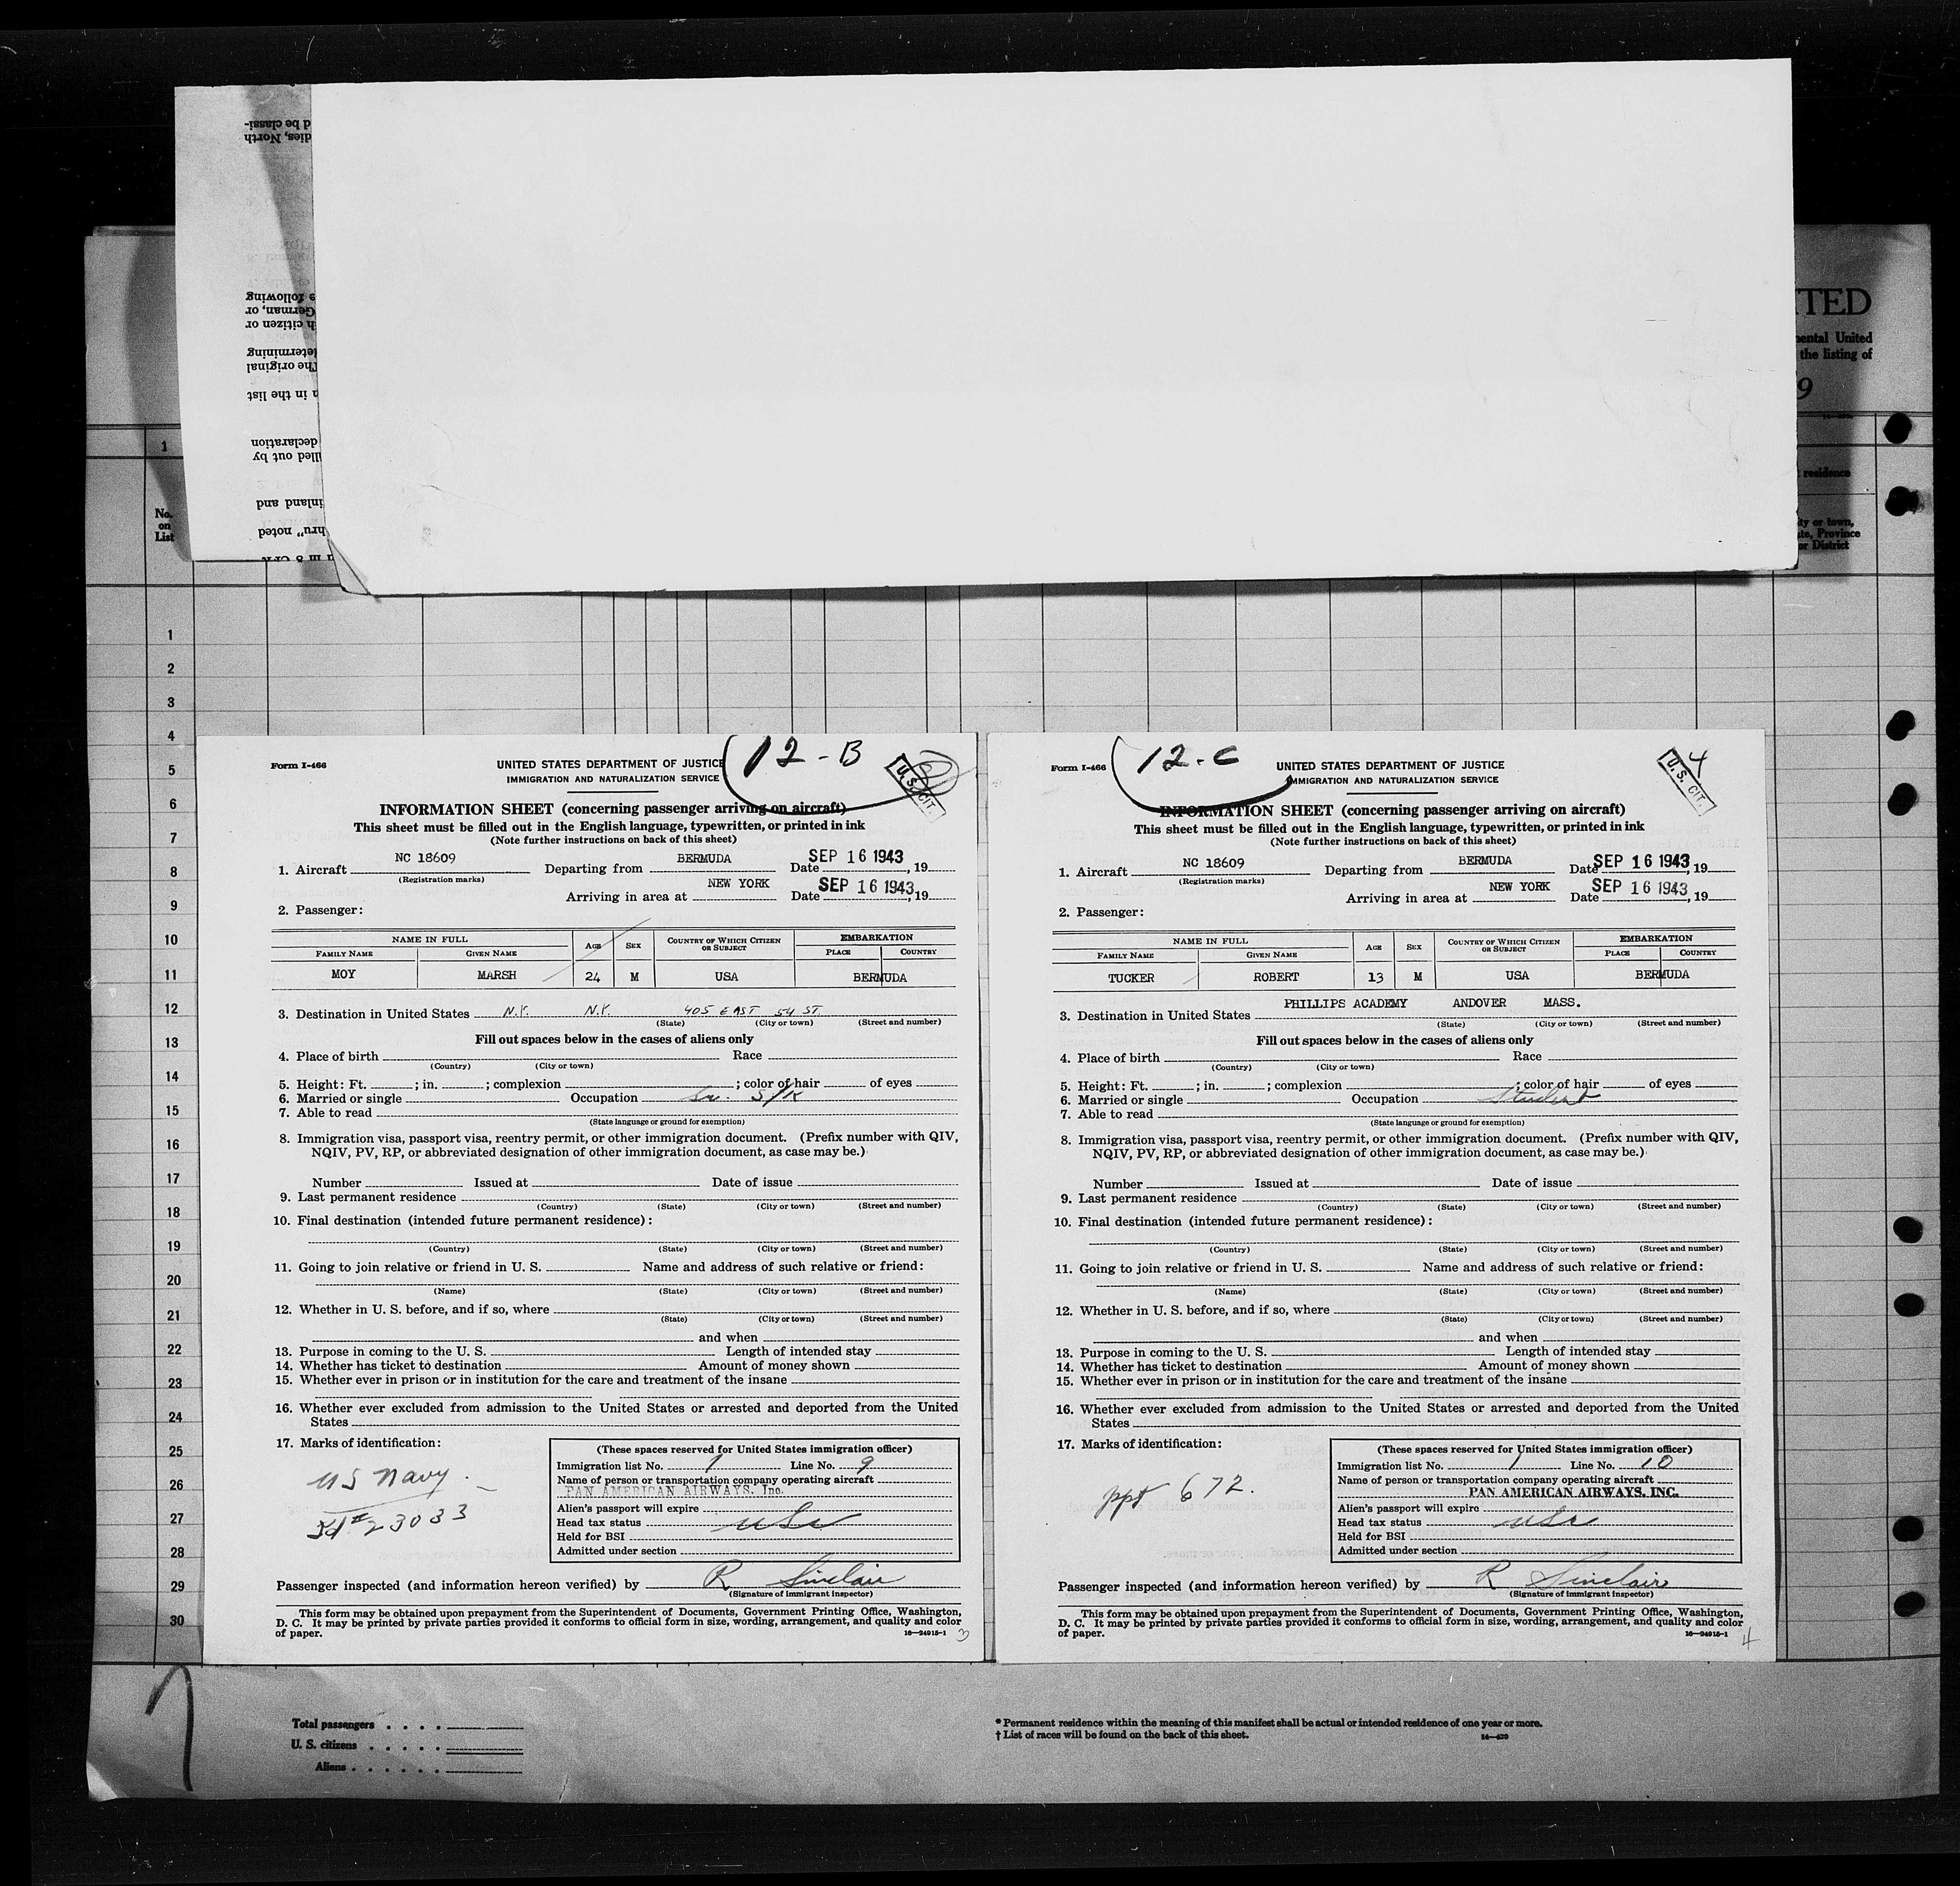 ITED
nental United
the listing of
9
residence
ty or town,
ate, Province
or District
d be classi-
dies, North
e following
German, or
h citizen or
determining
The original
n in the list
declaration
lled out by
inland and
hru" noted
1
No.
on
List
1
2
3
4
5
6
7
8
9
10
11
12
13
14
15
16
17
18
19
20
21
22
23
24
25
26
27
28
29
30
12-B
U.S. CIT.
Form I-466
UNITED STATES DEPARTMENT OF JUSTICE
IMMIGRATION AND NATURALIZATION SERVICE
INFORMATION SHEET (concerning passenger arriving on aircraft)
This sheet must be filled out in the English language, typewritten, or printed in ink
(Note further instructions on back of this sheet)
1. Aircraft NC 18609 Departing from BERMUDA Date SEP 16 1943, 19
(Registration marks)
Arriving in area at NEW YORK Date SEP 16 1943, 19
2. Passenger:
NAME IN FULL AGE SEX COUNTRY OF WHICH CITIZEN OR SUBJECT EMBARKATION
FAMILY NAME GIVEN NAME PLACE COUNTRY
MOY MARSH 24 M USA BERMUDA
3. Destination in United States N.Y. N.Y. 405 EAST 54 ST
(State) (City or town) (Street and number)
Fill out spaces below in the cases of aliens only
4. Place of birth Race
(Country) (City or town)
5. Height: Ft. ; in. ; complexion ; color of hair of eyes
6. Married or single Occupation S/K
7. Able to read
(State language or ground for exemption)
8. Immigration visa, passport visa, reentry permit, or other immigration document. (Prefix number with QIV,
NQIV, PV, RP, or abbreviated designation of other immigration document, as case may be.)
Number Issued at Date of issue
9. Last permanent residence
(Country) (State) (City or town) (Street and number)
10. Final destination (intended future permanent residence):
(Country) (State) (City or town) (Street and number)
11. Going to join relative or friend in U. S. Name and address of such relative or friend:
(Name) (State) (City or town) (Street and number)
12. Whether in U. S. before, and if so, where
(State) (City or town) (Street and number)
and when
13. Purpose in coming to the U. S. Length of intended stay
14. Whether has ticket to destination Amount of money shown
15. Whether ever in prison or in institution for the care and treatment of the insane
16. Whether ever excluded from admission to the United States or arrested and deported from the United
States
17. Marks of identification:
US Navy
Id # 23033
(These spaces reserved for United States immigration officer)
Immigration list No. 1 Line No. 9
Name of person or transportation company operating aircraft
PAN AMERICAN AIRWAYS. Inc.
Alien's passport will expire
Head tax status USC
Held for BSI
Admitted under section
Passenger inspected (and information hereon verified) by R Sinclair
(Signature of immigrant inspector)
This form may be obtained upon prepayment from the Superintendent of Documents, Government Printing Office, Washington,
D. C. It may be printed by private parties provided it conforms to official form in size, wording, arrangement, and quality and color
of paper. 16—24915-1 3
12-C
4
U.S. CIT.
Form I-466
UNITED STATES DEPARTMENT OF JUSTICE
IMMIGRATION AND NATURALIZATION SERVICE
INFORMATION SHEET (concerning passenger arriving on aircraft)
This sheet must be filled out in the English language, typewritten, or printed in ink
(Note further instructions on back of this sheet)
1. Aircraft NC 18609 Departing from BERMUDA Date SEP 16 1943, 19
(Registration marks)
Arriving in area at NEW YORK Date SEP 16 1943, 19
2. Passenger:
NAME IN FULL AGE SEX COUNTRY OF WHICH CITIZEN OR SUBJECT EMBARKATION
FAMILY NAME GIVEN NAME PLACE COUNTRY
TUCKER ROBERT 13 M USA BERMUDA
3. Destination in United States PHILLIPS ACADEMY ANDOVER MASS.
(State) (City or town) (Street and number)
Fill out spaces below in the cases of aliens only
4. Place of birth Race
(Country) (City or town)
5. Height: Ft. ; in. ; complexion ; color of hair of eyes
6. Married or single Occupation Student
7. Able to read
(State language or ground for exemption)
8. Immigration visa, passport visa, reentry permit, or other immigration document. (Prefix number with QIV,
NQIV, PV, RP, or abbreviated designation of other immigration document, as case may be.)
Number Issued at Date of issue
9. Last permanent residence
(Country) (State) (City or town) (Street and number)
10. Final destination (intended future permanent residence):
(Country) (State) (City or town) (Street and number)
11. Going to join relative or friend in U. S. Name and address of such relative or friend:
(Name) (State) (City or town) (Street and number)
12. Whether in U. S. before, and if so, where
(State) (City or town) (Street and number)
and when
13. Purpose in coming to the U. S. Length of intended stay
14. Whether has ticket to destination Amount of money shown
15. Whether ever in prison or in institution for the care and treatment of the insane
16. Whether ever excluded from admission to the United States or arrested and deported from the United
States
17. Marks of identification:
ppt 672.
(These spaces reserved for United States immigration officer)
Immigration list No. 1 Line No. 10
Name of person or transportation company operating aircraft
PAN AMERICAN AIRWAYS, INC.
Alien's passport will expire
Head tax status USC
Held for BSI
Admitted under section
Passenger inspected (and information hereon verified) by R Sinclair
(Signature of immigrant inspector)
This form may be obtained upon prepayment from the Superintendent of Documents, Government Printing Office, Washington,
D. C. It may be printed by private parties provided it conforms to official form in size, wording, arrangement, and quality and color
of paper. 16—24915-1 4
7
Total passengers . . . .
U. S. citizens . . . . .
Aliens . . . . . .
* Permanent residence within the meaning of this manifest shall be actual or intended residence of one year or more.
† List of races will be found on the back of this sheet.